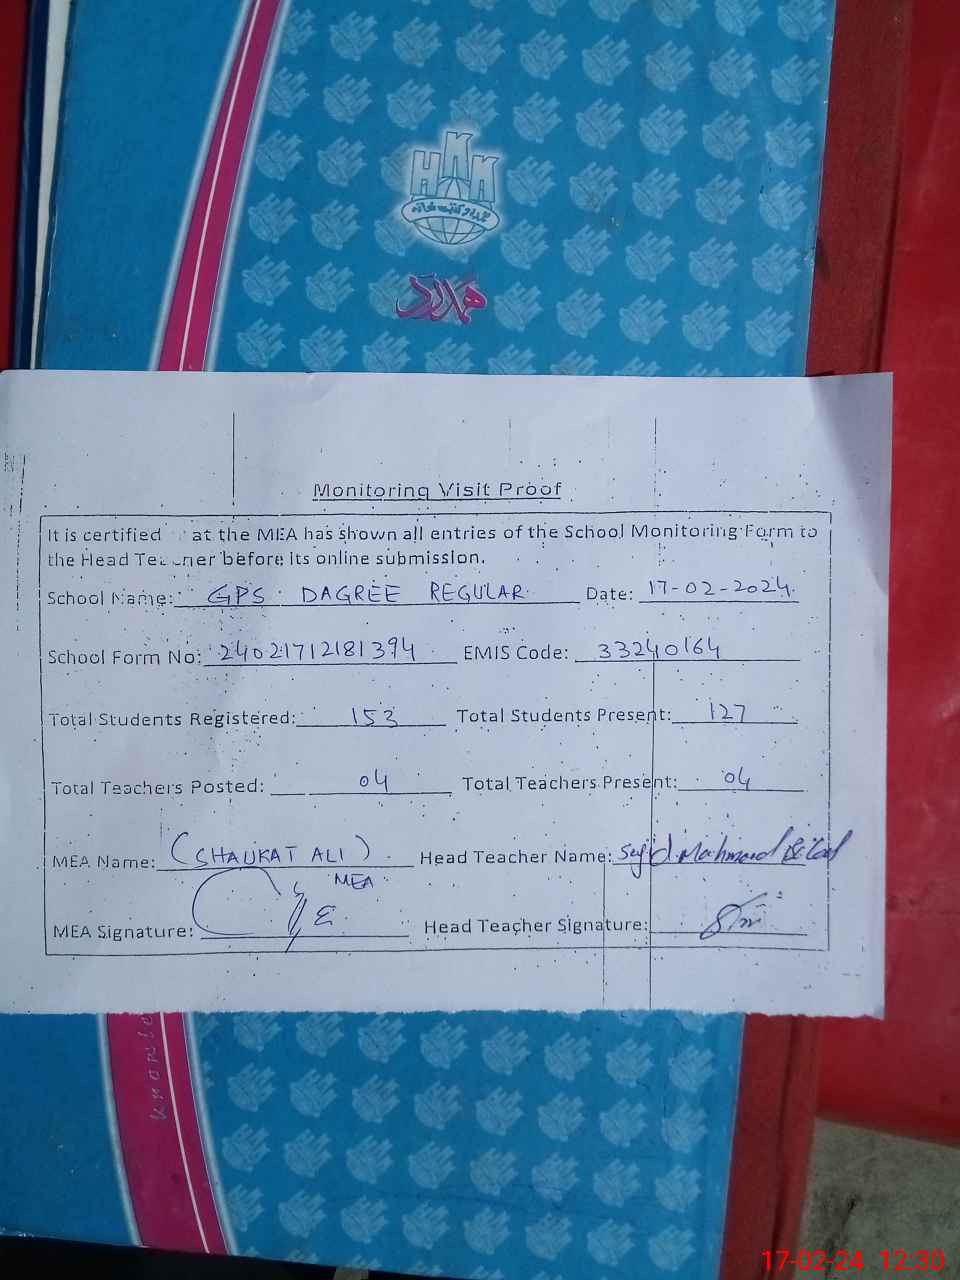 HKK
ہمدرد کتب خانہ
ہمدرد
Monitoring Visit Proof
It is certified at the MEA has shown all entries of the School Monitoring Form to
the Head Teacher before its online submission.
School Name: GPS DAGREE REGULAR Date: 17-02-2024
School Form No: 24021712181394 EMIS Code: 33240164
Total Students Registered: 153 Total Students Present: 127
Total Teachers Posted: 04 Total Teachers Present: 04
MEA Name: (SHAUKAT ALI) Head Teacher Name: Sajid Mahmood
MEA
MEA Signature: Head Teacher Signature:
17-02-24 12:30